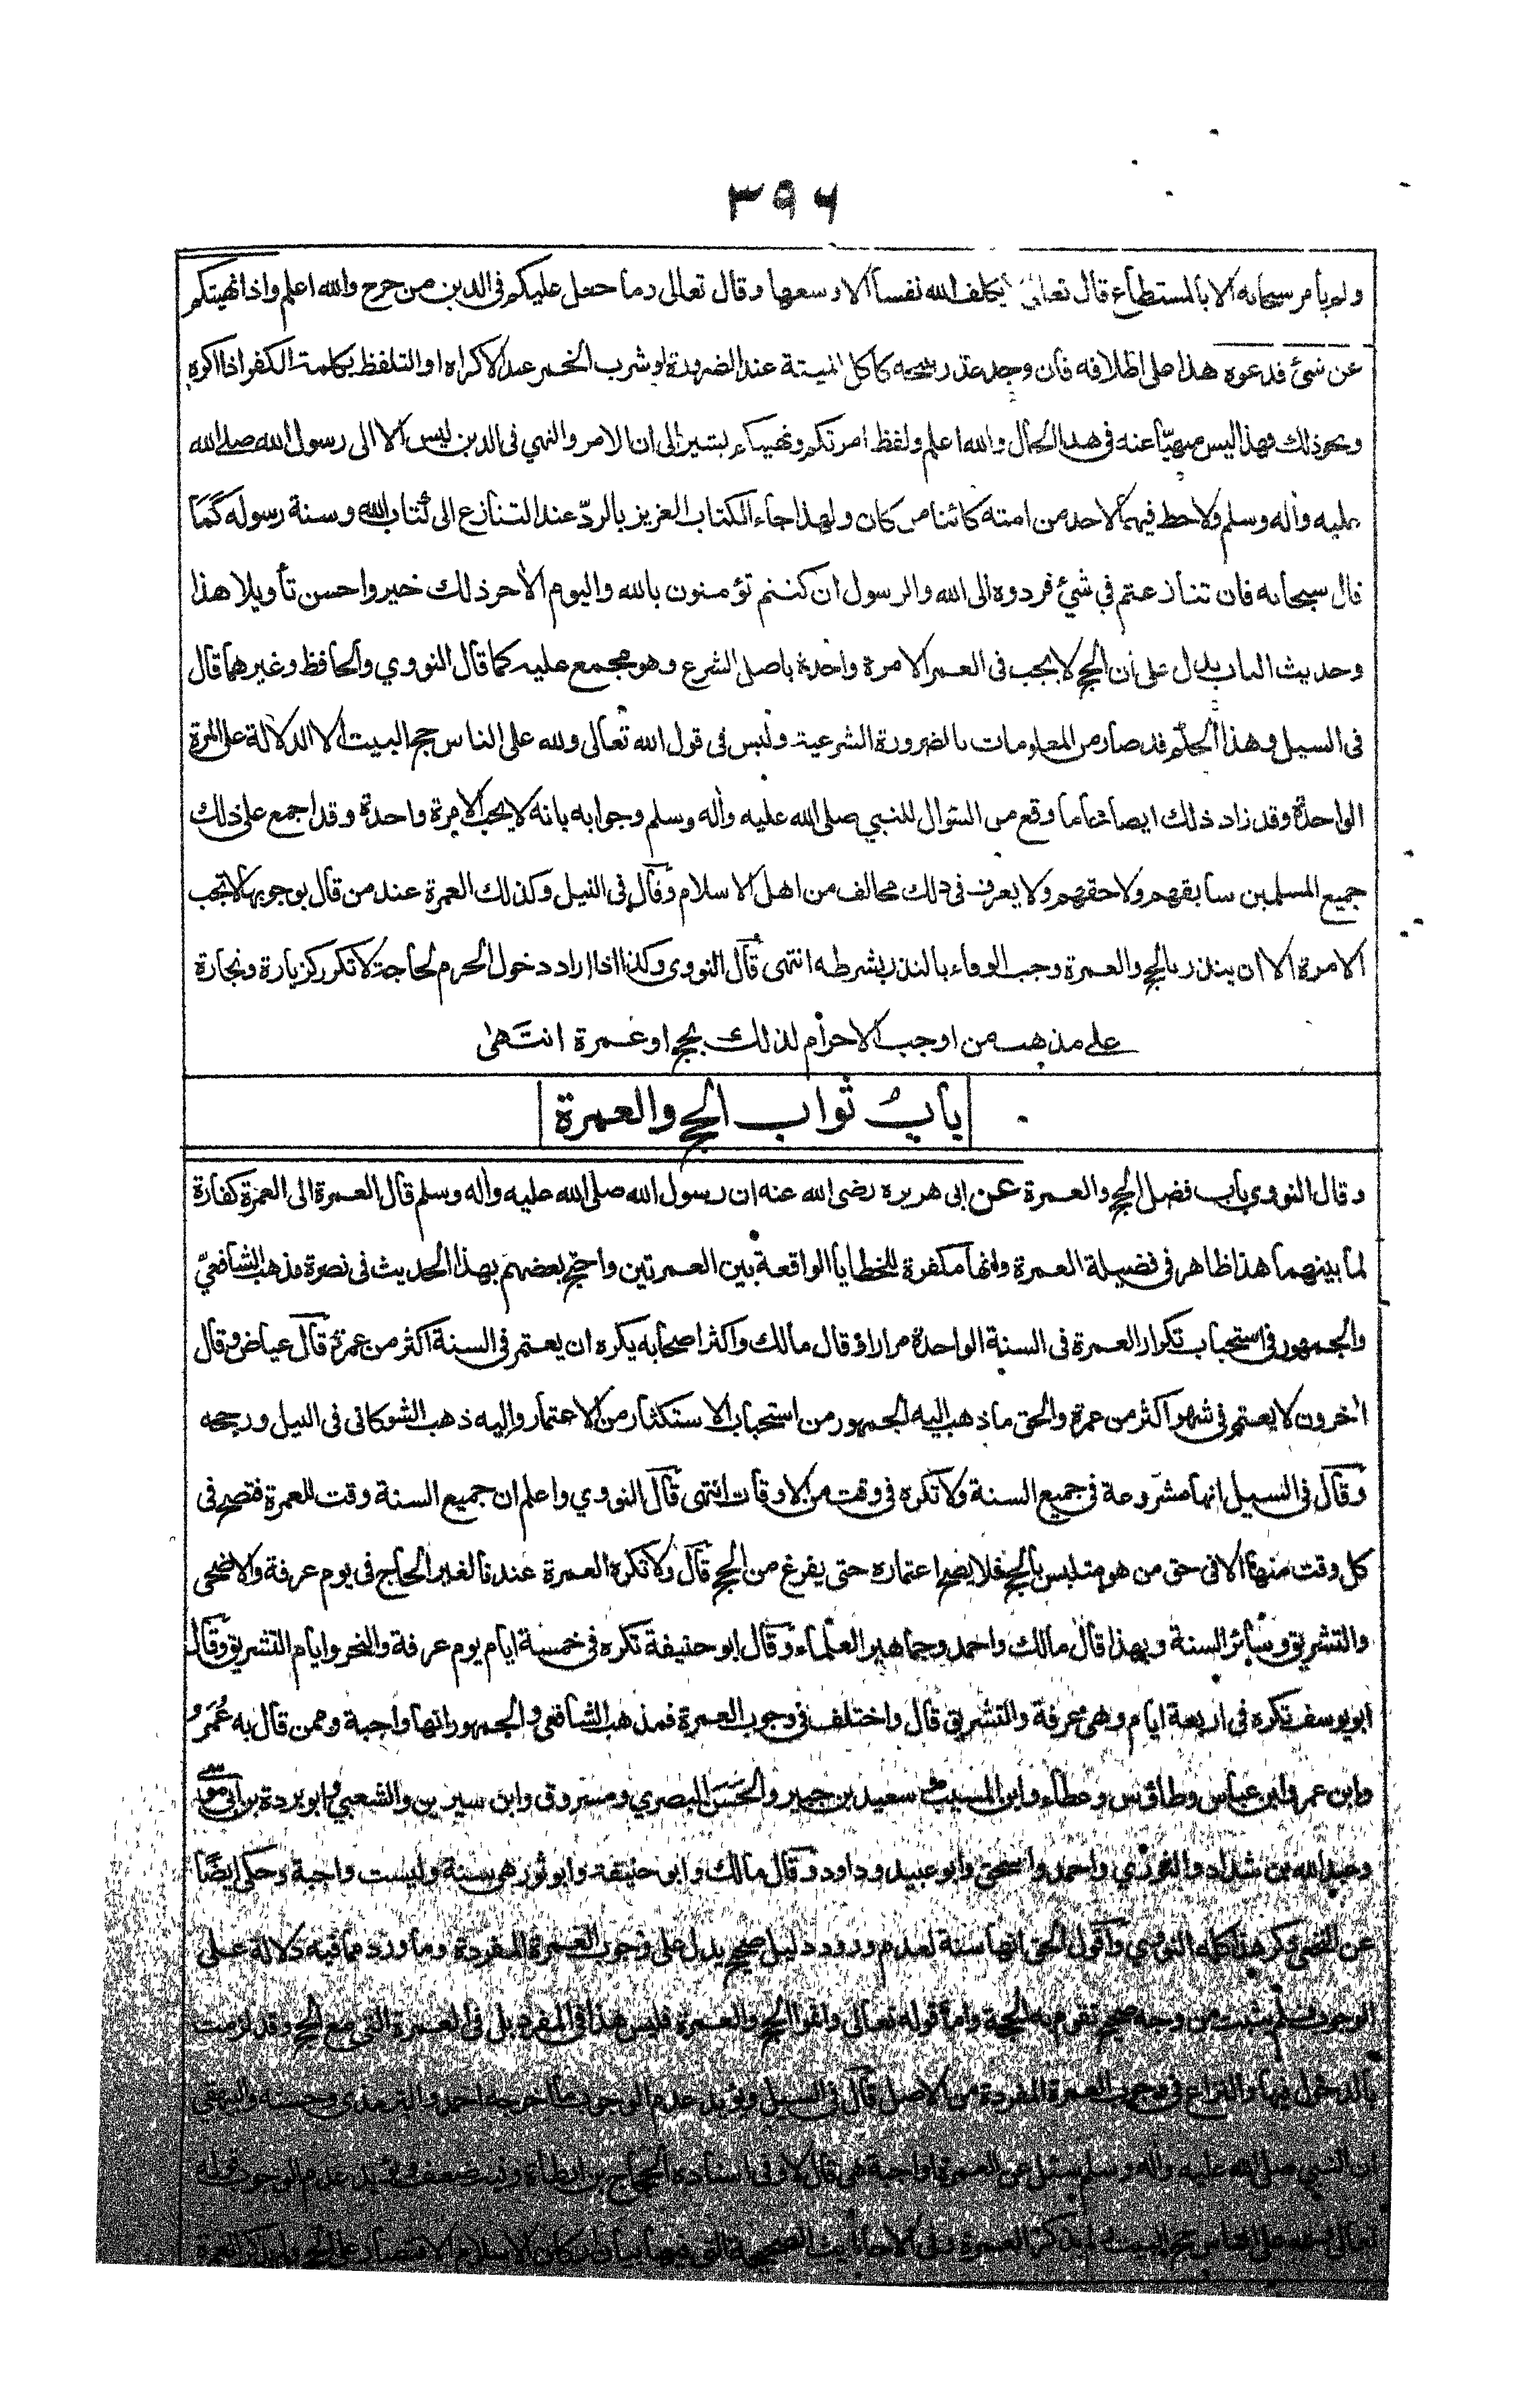 ٣٩٦
ولم يأمر سبحانه الا بالمستطاع قال تعالى لا يكلف الله نفسا الا وسعها وقال تعالى وما جعل عليكم فى الدين من حرج والله اعلم واذا نهيتكم
عن شئ فدعوه هذا على اطلاقه فان وجد عذر يبيحه كاكل الميتة عند الضرورة او شرب الخمر عند الاكراه او التلفظ بكلمة الكفر اذا اكره
ونحو ذلك فهذا ليس منهيّا عنه فى هذا الحال والله اعلم ولفظ امرتكم ونهيتكم يشير الى ان الامر والنهي فى الدين ليس الا الى رسول الله صلى الله
عليه واله وسلم ولاحظ فيهما لاحد من امته كائنا من كان ولهذا جاء الكتاب العزيز بالردّ عند التنازع الى كتاب الله وسنة رسوله كما
قال سبحانه فان تنازعتم في شئ فردوه الى الله والرسول ان كنتم تؤمنون بالله واليوم الاخر ذلك خير واحسن تأويلا هذا
وحديث الباب يدل على ان الحج لا يجب فى العمر الا مرة واحدة باصل الشرع وهو مجمع عليه كما قال النووي والحافظ وغيرهما قال
فى السيل وهذا الحكم قد صار من المعلومات بالضرورة الشرعية وليس فى قول الله تعالى ولله على الناس حج البيت الا الدلالة على المرة
الواحدة وقد زاد ذلك ايضاحا ما وقع من السؤال للنبي صلى الله عليه واله وسلم وجوابه بانه لا يجب الا مرة واحدة وقد اجمع على ذلك
جميع المسلمين سابقهم ولاحقهم ولا يعرف فى ذلك مخالف من اهل الاسلام وقال فى النيل وكذلك العمرة عند من قال بوجوبها لا تجب
الا مرة الا ان ينذر بالحج والعمرة وجب الوفاء بالنذر بشرطه انتهى قال النووى وكذا اذا اراد دخول الحرم لحاجة لا تكرر كزيارة وتجارة
على مذهب من اوجب الاحرام لذلك بحج او عمرة انتهى
باب ثواب الحج والعمرة
وقال النووي باب فضل الحج والعمرة عن ابى هريره رضى الله عنه ان رسول الله صلى الله عليه واله وسلم قال العمرة الى العمرة كفارة
لما بينهما هذا ظاهر فى فضيلة العمرة وانها مكفرة للخطايا الواقعة بين العمرتين واحتج بعضهم بهذا الحديث فى نصرة مذهب الشافعيّ
والجمهور فى استحباب تكرار العمرة فى السنة الواحدة مرارا وقال مالك واكثر اصحابه يكره ان يعتمر فى السنة اكثر من عمرة قال عياض وقال
اخرون لا يعتمر فى شهر اكثر من عمرة والحق ما ذهب اليه الجمهور من استحباب الاستكثار من الاعتمار واليه ذهب الشوكانى فى النيل ورجحه
وقال فى السيل انها مشروعة فى جميع السنة ولا تكره فى وقت من الاوقات انتهى قال النووي واعلم ان جميع السنة وقت للعمرة فتصح فى
كل وقت منها الا فى حق من هو متلبس بالحج فلا يصح اعتماره حتى يفرغ من الحج قال ولا تكره العمرة عندنا لغير الحاج فى يوم عرفة والاضحى
والتشريق وسائر السنة وبهذا قال مالك واحمد وجماهير العلماء وقال ابو حنيفة تكره فى خمسة ايام يوم عرفة والنحر وايام التشريق وقال
ابو يوسف تكره فى اربعة ايام وهى عرفة والتشريق قال واختلف فى وجوب العمرة فمذهب الشافعى والجمهور انها واجبة وممن قال به عُمَر و
وابن عمر وابن عباس وطاؤس وعطاء وابن المسيب وسعيد بن جبير والحَسَن البصري ومسروق وابن سيرين والشعبي وابو بردة بن ابى موسى
وعبد الله بن شداد والثوري واحمد واسحق وابو عبيد وداود وقال مالك وابو حنيفة وابو ثور هى سنة وليست واجبة وحكى ايضًا
عن النخعى ذكر هذا كله النووي واقول الحق انها سنة لعدم ورود دليل صحيح يدل على وجوب العمرة المفردة وما ورد مما فيه دلالة على
الوجوب فلم يثبت من وجه صحيح تقوم به الحجة واما قوله تعالى واتموا الحج والعمرة فليس هذا فى المفرد بل فى العمرة التى مع الحج وقد لزمت
بالدخول فيها والنزاع فى وجوب العمرة المفردة من الاصل قال فى السيل ويؤيد عدم الوجوب ما اخرجه احمد والترمذى وحسنه والبيهقى
ان النبي صلى الله عليه واله وسلم سئل عن العمرة اواجبة هى قال لا وفى اسناده الحجاج بن ارطاة وفيه ضعف ويؤيد عدم الوجوب قوله
تعالى ولله على الناس حج البيت ولم يذكر العمرة وفى الاحاديث الصحيحة التى فيها بيان اركان الاسلام الاقتصار على الحج ولم يذكر العمرة